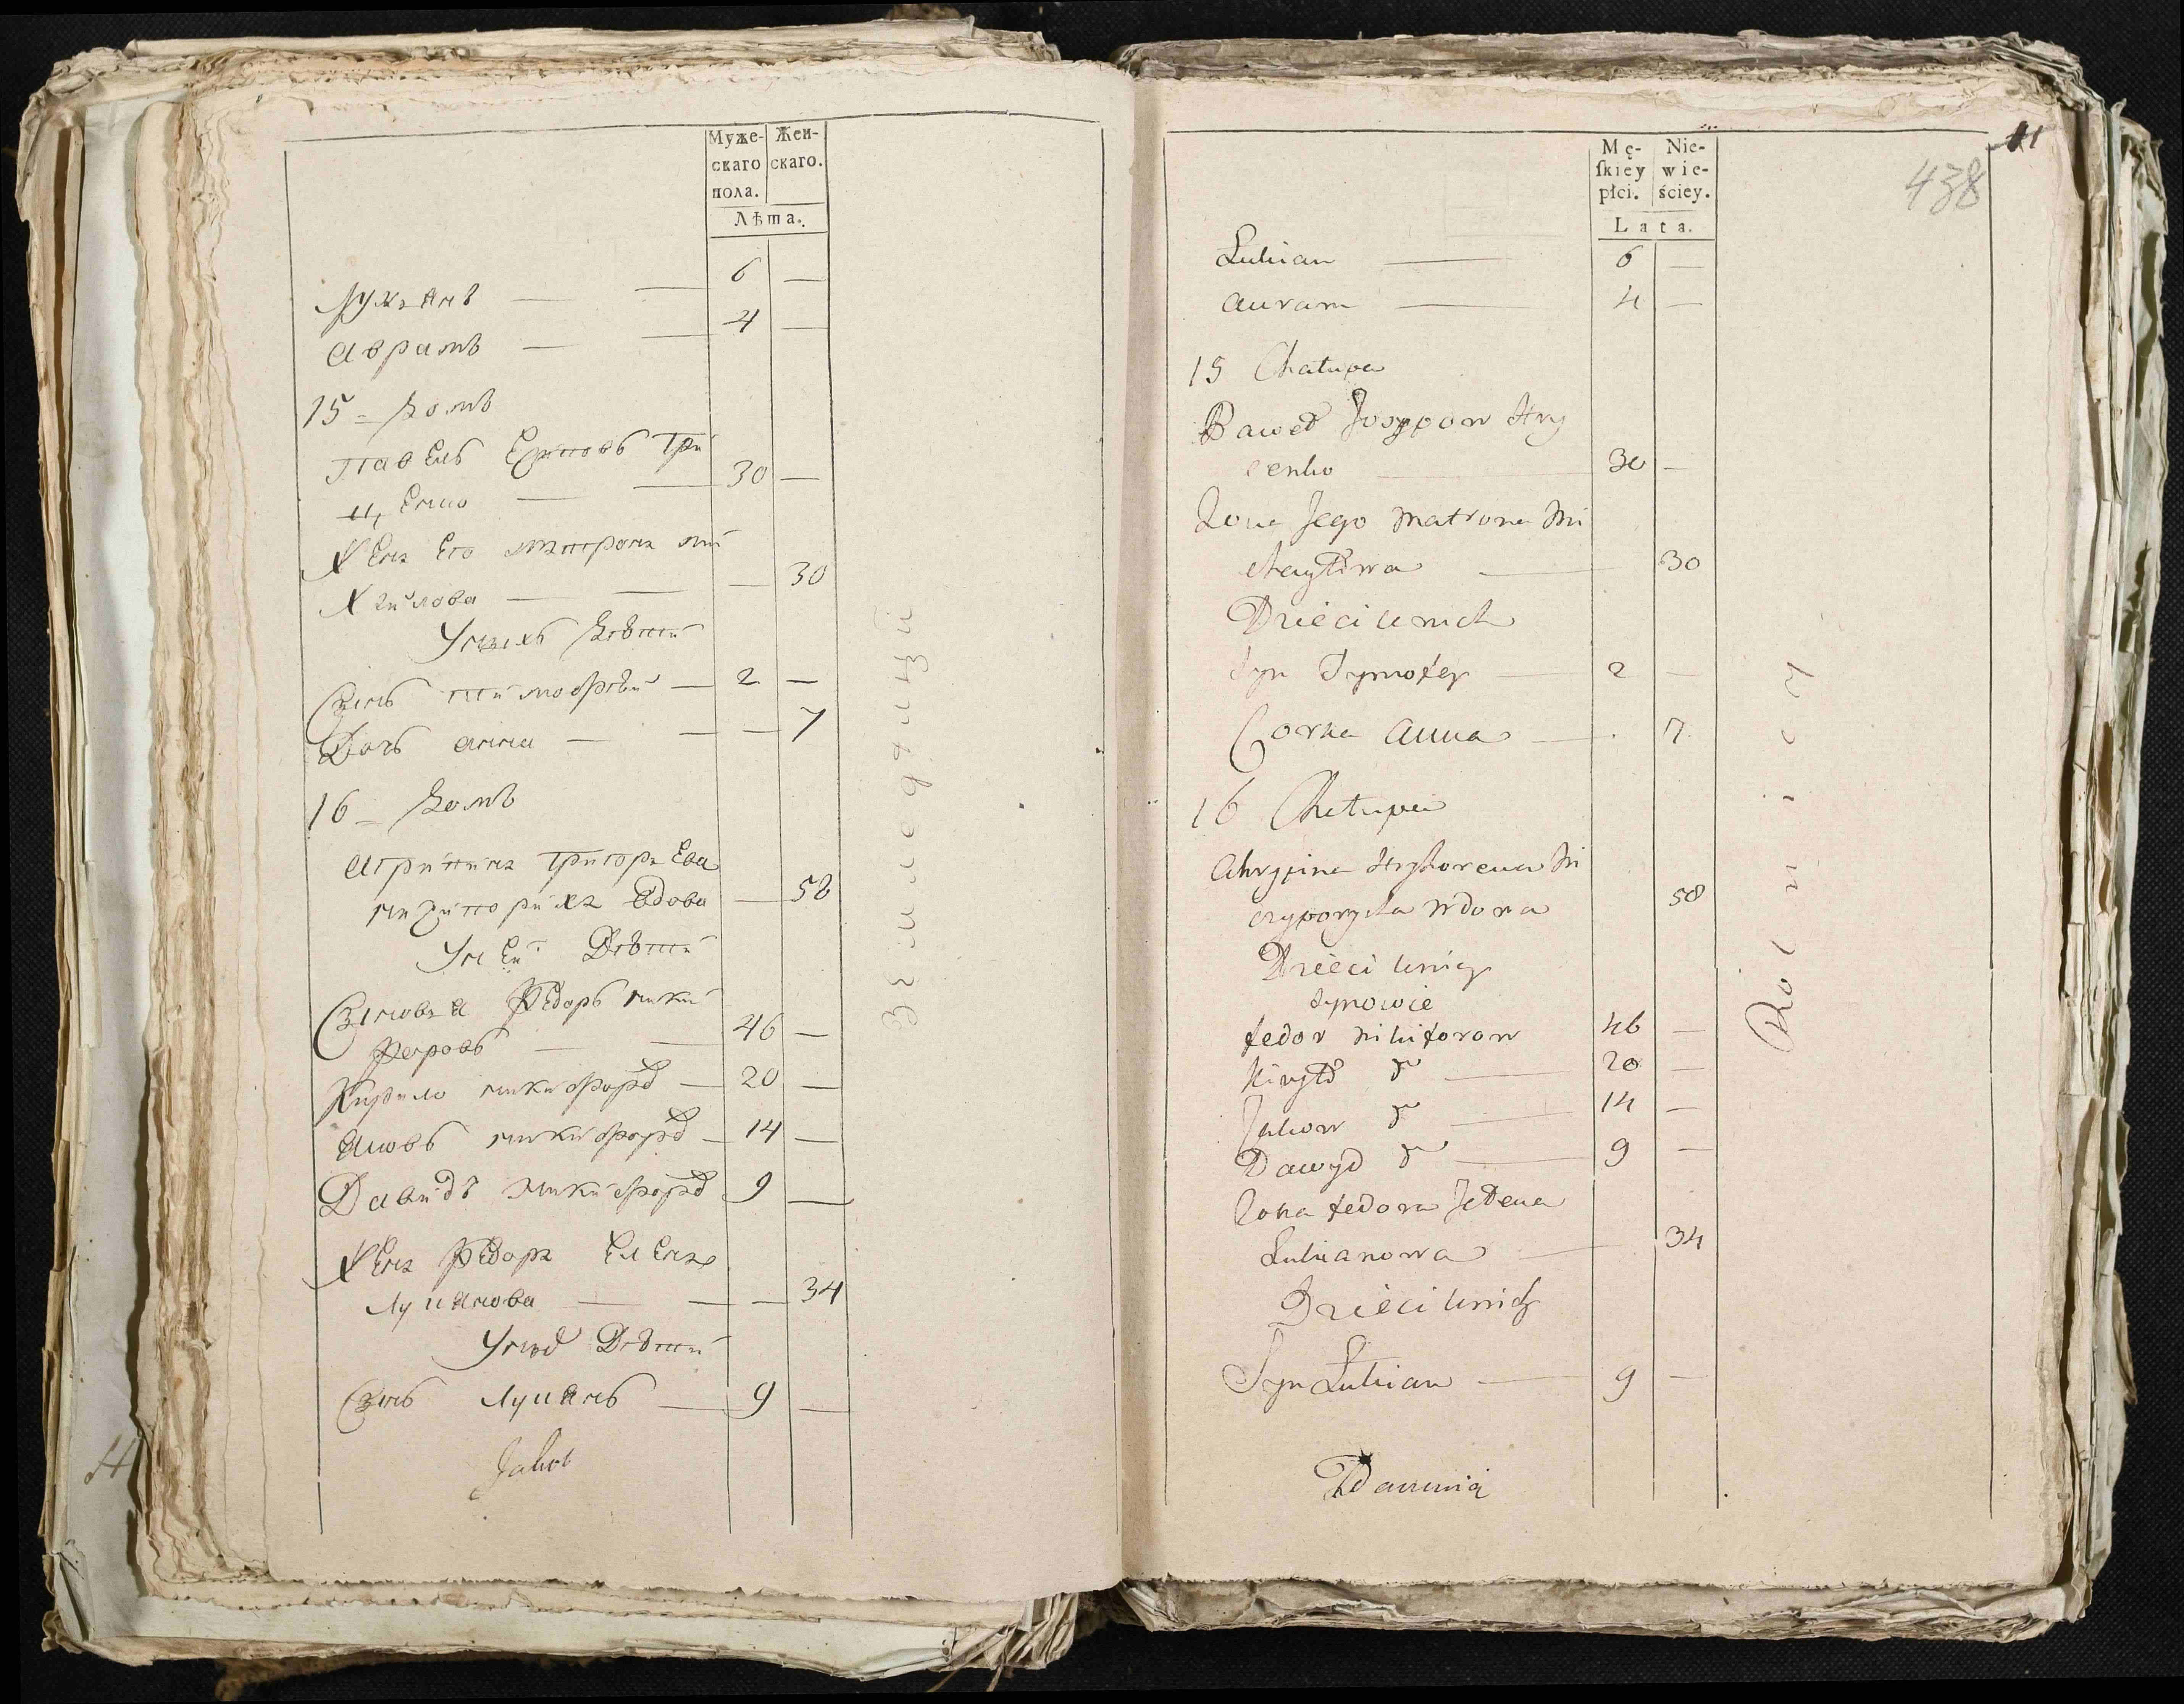 Муже-
скаго
пола.
Жен-
скаго.
Лѣта.
Лукьянъ — 6 —
Аврамъ — 4 —
15 - домъ
Павелъ Есиповъ Гри
ценко — 30 —
Жена Его Матрона Ми
хайлова — — 30
У нихъ дѣтей
Сынъ Тимофѣй — 2 —
Дочь Анна — — 7
16 - домъ
Агрипина Григорьева
вдова — 58
У ней Дѣтей
Сыновья Федоръ Ники
форовъ — 46 —
Кирило Никифоро — 20 —
Яковъ Никифоро — 14 —
Давидъ Никифоро 9 —
Жена Федора Елена
Лукянова — — 34
Дѣтей
Сынъ Лукянъ — 9 —
Jakob
Землѣдѣлцы
41
438
Mę-
ſkiey
płci.
Nie-
wie-
ściey.
Lata.
Lukian — 6 —
Auram — 4 —
15 Chałupa
Paweł Josypow Hry
cenko — 30 —
Zona Jego Matrona Mi
chayłowa — 30
Dzieci u nich
Syn Tymofey — 2 —
Corka Anna — . 7
16 Chałupa
Ahrypina Hryhorewa Ni
czyporycha wdowa 58
Dzieci u niey
synowie
Fedor Nikiforow 46 —
Kiryło d — 20 —
Jakow d — 14 —
Dawyd d — 9 —
Zona Fedora Jełena
Lukianowa — 34
Dzieci u nich
Syn Lukian — 9 —
Rolnicy